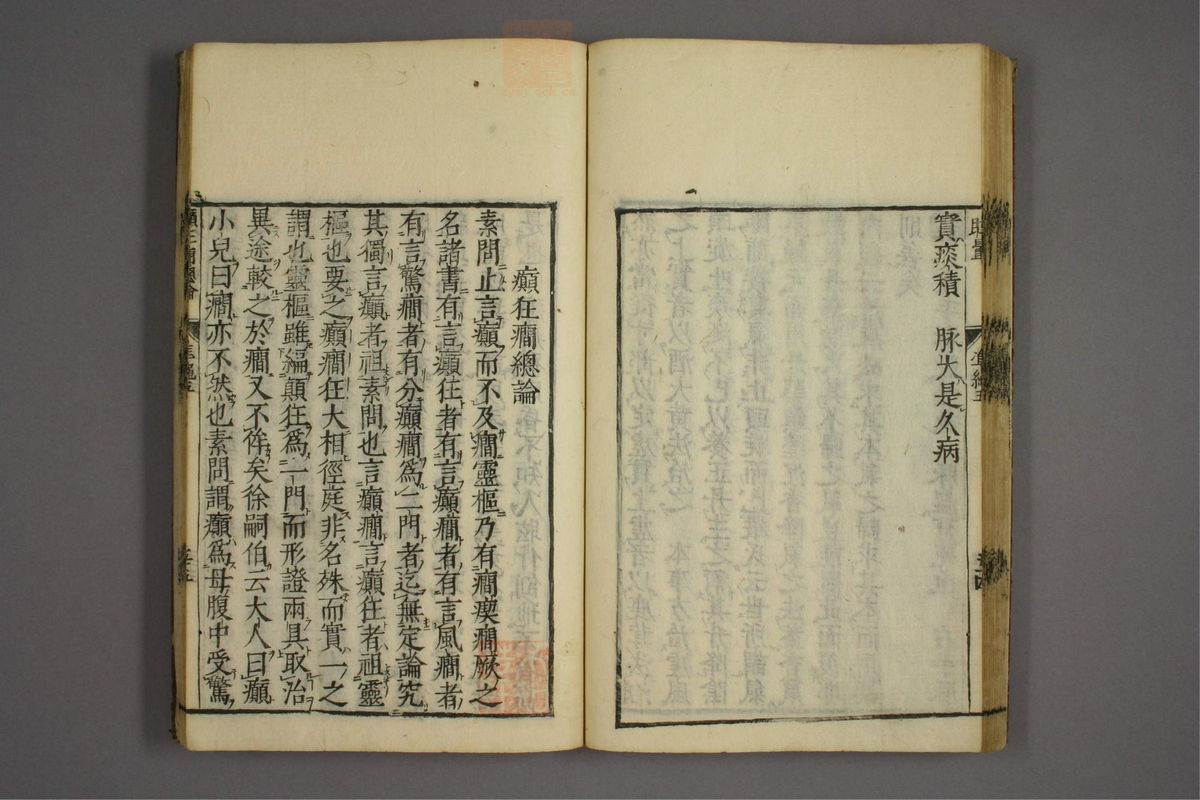 實痰積 脉大是久病
癲狂癎總論
素問止言癲而不及癎靈樞乃有癎瘈癎厥之
名諸書有言癲狂者有言癲癎者有言風癎者
有言驚癎者有分癲癎爲二門者迄無定論究
其獨言癲者祖素問也言癲癎言癲狂者祖靈
樞也要之癲癎狂大相徑庭非名殊而實一之
謂也靈樞雖編癲狂爲一門而形證兩具取治
異途較之於癎又不侔矣徐嗣伯云大人曰癲
小兒曰癎亦不然也素問謂癲爲母腹中受驚